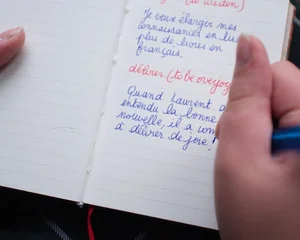 (to widen)
Je veux élargir mes
connaissances en
plus de livres en
français.
délirer (to be overjoyed
Quand Laurent a
entendu la bonne
nouvelle, il a com
à délirer de joie.